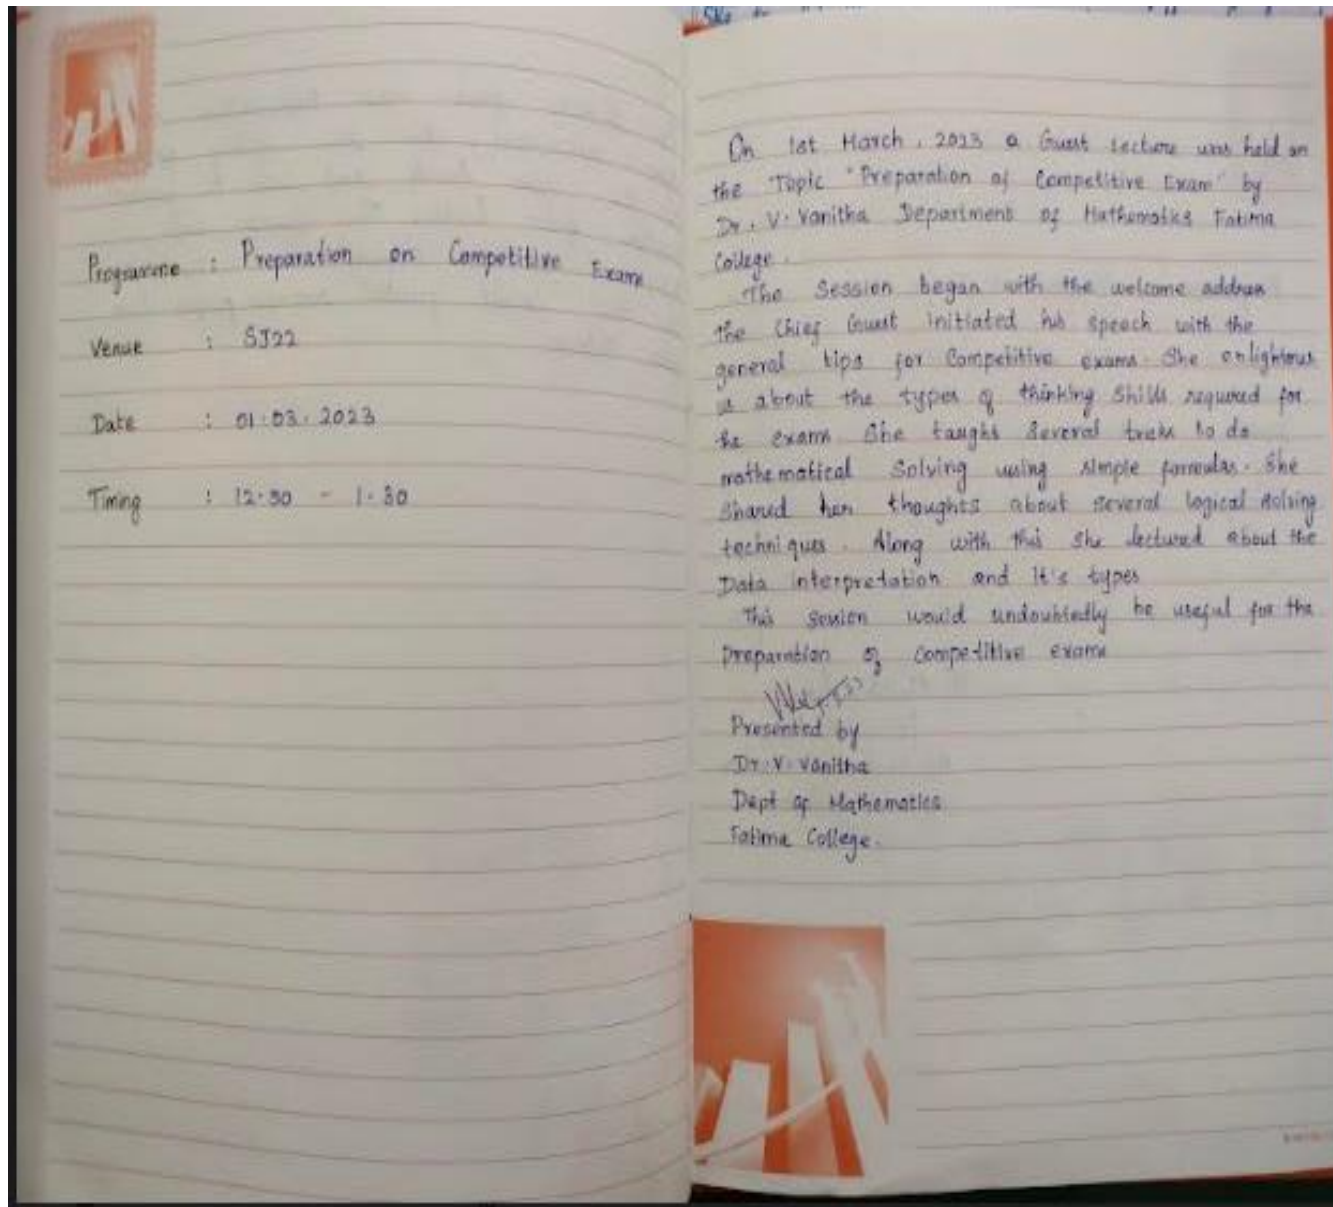 Programme : Preparation on Competitive Exam
Venue : SJ22
Date : 01.03.2023
Timing : 12.30 - 1.30
On 1st March, 2023 a Guest lecture was held on
the Topic "Preparation of Competitive Exam" by
Dr. V. Vanitha Department of Mathematics Fatima
College.
The Session began with the welcome address
the Chief Guest initiated his speech with the
general tips for Competitive exams. She enlightens
us about the types of thinking Skills required for
the exams She taught Several tricks to do
mathematical Solving using simple formulas. She
Shared her thoughts about several logical solving
techniques. Along with this She lectured about the
Data interpretation and it's types
This session would undoubtedly be useful for the
preparation of competitive exams
Presented by
Dr. V. Vanitha
Dept of Mathematics
Fatima College.